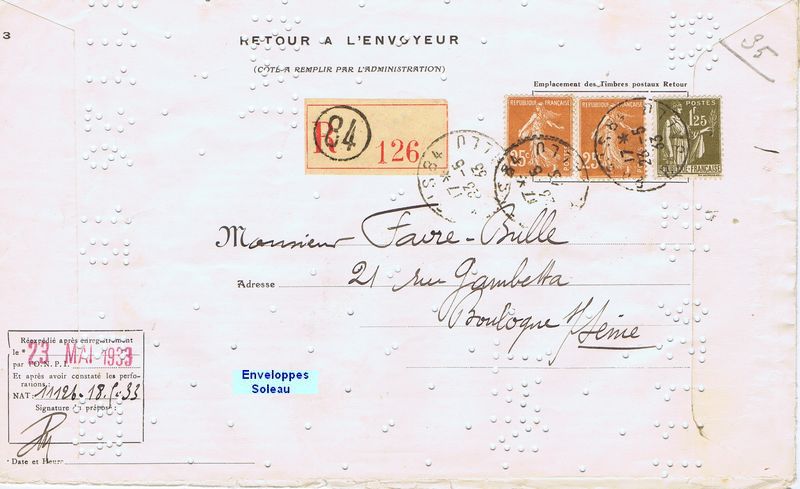 3
RETOUR A L'ENVOYEUR
35
(COTÉ A REMPLIR PAR L'ADMINISTRATION)
Emplacement des Timbres postaux Retour
R 84 126
REPUBLIQUE FRANÇAISE
25c
REPUBLIQUE FRANÇAISE
25c
POSTES
1f25
Monsieur Faivre-Bulle
Adresse 21 rue Gambetta
Boulogne s/ Seine
Réexpédié après enregistrement
le 23 MAI 1933
par l'O.N.P.I.
Et après avoir constaté les perfo-
rations:
NAT: 11126-18.5.33
Signature du préposé:
Date et Heure
Enveloppes
Soleau